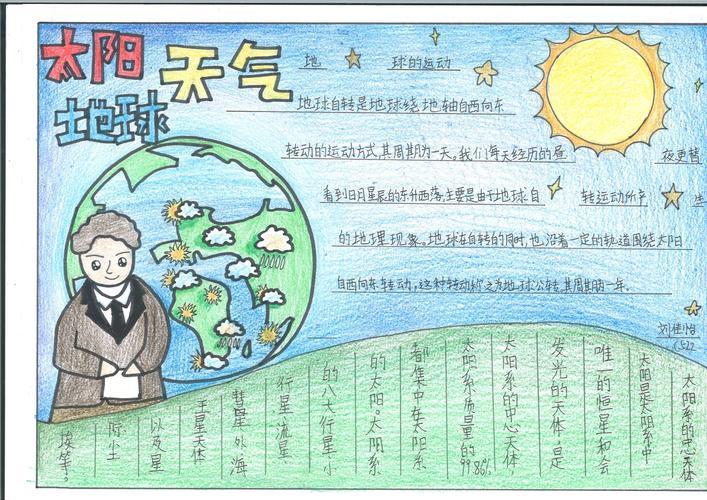 太阳
天气
地球
地球的运动
地球自转是地球绕地轴自西向东
转动的运动方式,其周期为一天。我们每天经历的昼夜更替
看到日月星辰的东升西落,主要是由于地球自转运动所产生
的地理现象。地球在自转的同时,也沿着一定的轨道围绕太阳
自西向东转动,这种转动称之为地球公转,其周期为一年。
太阳系的中心天体
太阳是太阳系中
唯一的恒星和会
发光的天体,是
太阳系的中心天体,
太阳系质量的99.86%
都集中在太阳系
的太阳。太阳系
的八大行星小
行星流星
彗星外海
王星天体
以及星
际尘
埃等。